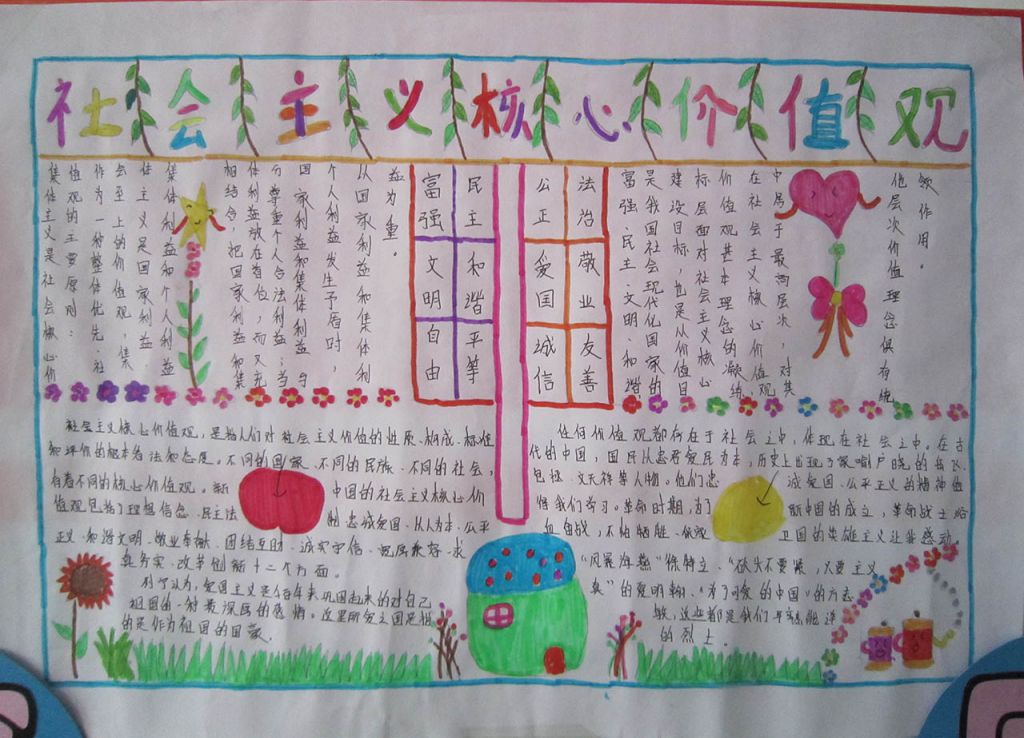 社会主义核心价值观
集体主义是社会核心价
值观的主要原则：
作为一种整体优先、社
会至上的价值观，集
体主义是国家利益
集体利益和个人利益
相结合，把国家利益和集
体利益放在首位，而又充
分尊重个人合法利益；当
国家利益和集体利益与
个人利益发生矛盾时，
从国家利益和集体利
益为重。
富强 民主
文明 和谐
自由 平等
公正 法治
爱国 敬业
诚信 友善
富强、民主、文明、和谐的
是我国社会现代化国家的
建设目标，也是从价值目
标层面对社会主义核心
价值观基本理念的凝练，
在社会主义核心价值观
中居于最高层次，对其
他层次价值理念俱有统
领作用。
社会主义核心价值观，是指人们对社会主义价值的性质、构成、标准
和评价的根本看法和态度。不同的国家、不同的民族、不同的社会，
有着不同的核心价值观。新 中国的社会主义核心价
值观包括了理想信念、民主法制 忠诚爱国、以人为本、公平
正义、和谐文明、敬业奉献、团结互助、诚实守信、 求
真务实、改革创新十二个方面。
列宁认为，爱国主义是
祖国的一种最深厚的感情。这里所爱之国是指
的是作为祖国的国家。
任何价值观都存在于社会之中，体现在社会之中。在古
代的中国，国民以忠君爱民为本，历史上出现了家喻户晓的岳飞、
包拯、文天祥等人物。他们忠 诚爱国、公平正义的精神值
得我们学习。革命时期，为了 新中国的成立，革命战士浴
血奋战，不怕牺牲、 卫国的英雄主义让我感动。
“ ”徐特立、“砍头不要紧，只要主义
真”的夏明翰、“ 可爱的中国”的方志
敏，这些都是我们
的烈士。